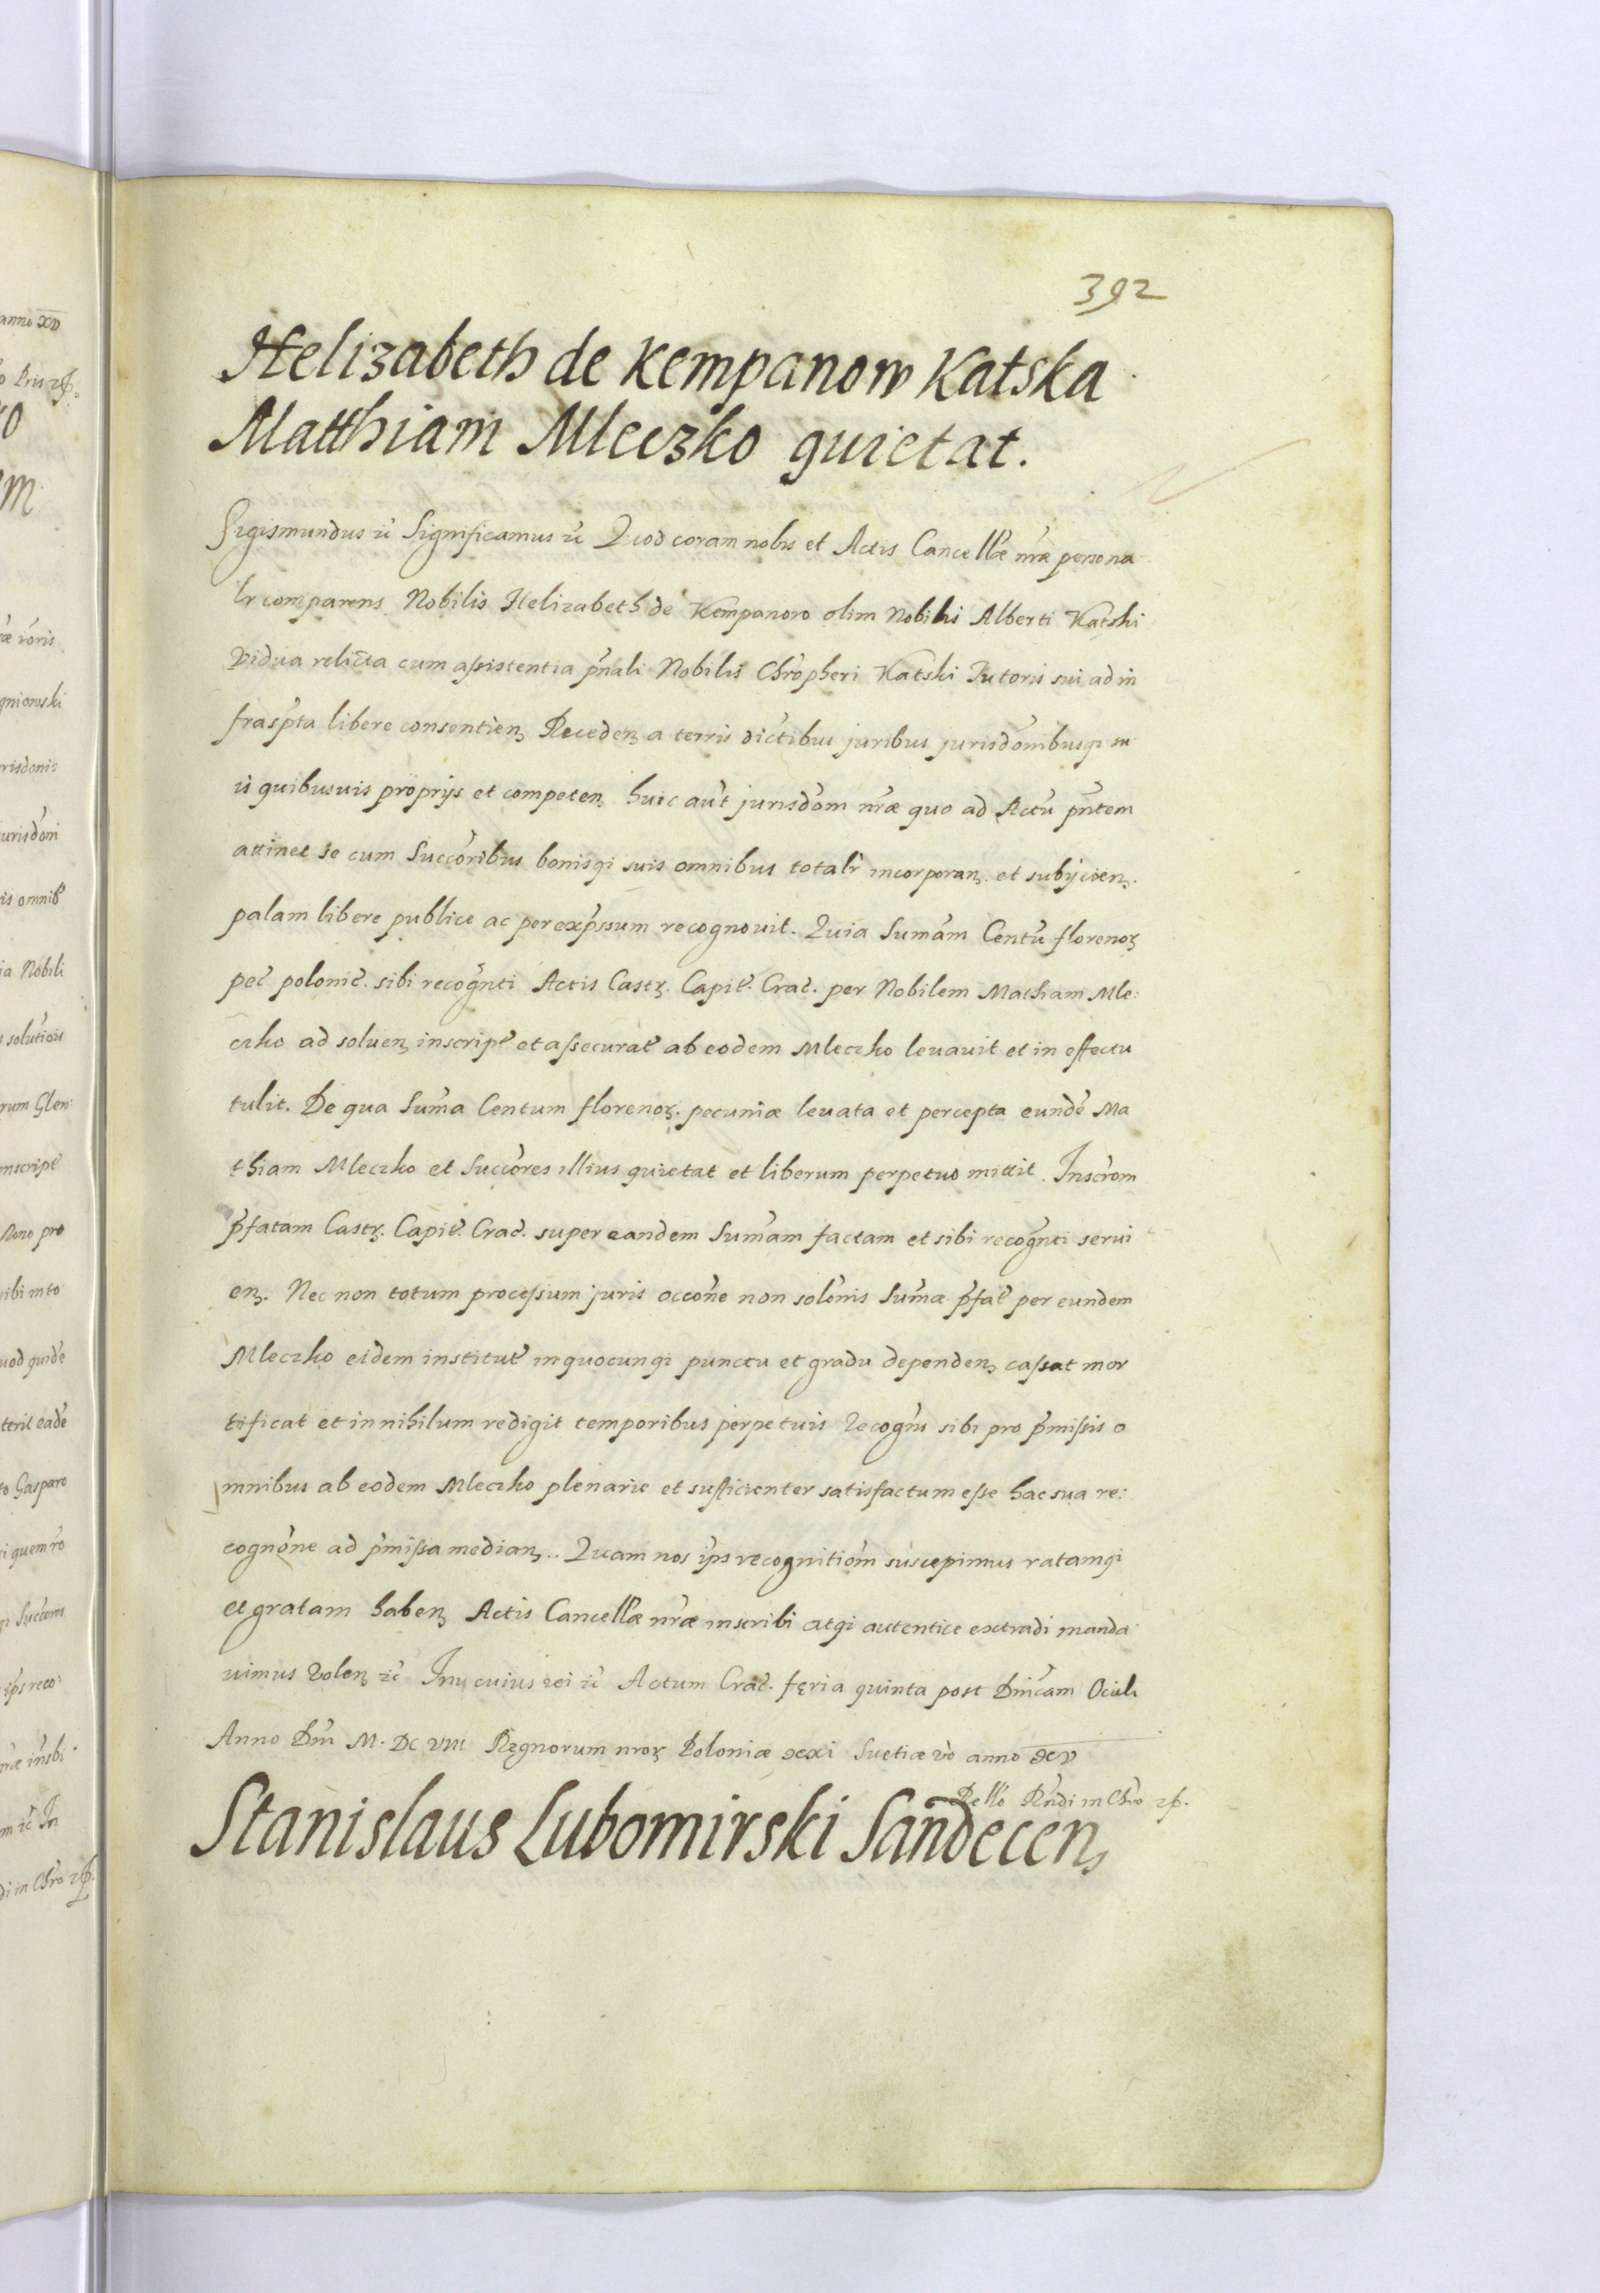 392
Helizabeth de Kempanow Katska
Matthiam Mleczko quietat.
Sigismundus zc̄ Significamus zc̄ Quod coram nobis et Actis Cancellæ nr̃æ persona
lr comparens Nobilis Helizabeth de Kempanow olim Nobilis Alberti Katski
vidua relicta cum assistentia pñali Nobilis Chr̃opheri Katski Tutoris sui ad in
frasp̃ta libere consentieñ Recedeñ a terris dictibus juribus jurisdõnibusq̃ su
is quibusuis proprijs et competeñ huic aũt jurisdõm nr̃æ quo ad Actũ pñtem
attinet se cum Succõribus bonisq̃ suis omnibus totalr̃ incorporañ. et subijcieñ.
palam libere publice ac per exp̃ssum recognouit. Quia Sumãm Centũ florenoꝝ
pec̃ polonic̃. sibi recogñti Actis Castꝝ. Capit̃. Crac̃. per Nobilem Mathiam Mle:
czko ad soluen̄ inscript̃ et assecurat̃ ab eodem Mleczko leuauit et in effectu
tulit. De qua Sum̃a Centum florenoꝝ. pecuniæ leuata et percepta eundẽ Ma
thiam Mleczko et Succõres illius quietat et liberum perpetuo mittit. Inscr̃om
p̃fatam Castꝝ. Capit̃. Crac̃. super eandem Sumãm factam et sibi recogñti serui
eñ. Nec non totum processum juris occõne non solõnis Sum̃æ p̃fat̃ per eundem
Mleczko eidem institut̃ in quocunq̃ punctu et gradu dependeñ cassat mor
tificat et in nihilum redigit temporibus perpetuis Recogñs sibi pro p̃missis o
mnibus ab eodem Mleczko plenarie et sufficienter satisfactum esse hac sua re:
cognõne ad p̃missa mediañ.. Quam nos ip̃s recognitiõm suscepimus ratamq̃
et gratam habeñ Actis Cancellæ nr̃æ inscribi atq̃ autentice extradi manda
uimus Voleñ zc̄ In cuius rei zc̄ Actum Crac̃. feria quinta post Dñicam Oculi
Anno Dñi M. DC VIII Regnorum nroꝝ Poloniæ xxi Suetiæ vo anno xv
Rello Rñdi in Chro zp.
Stanislaus Lubomirski Sandeceñ